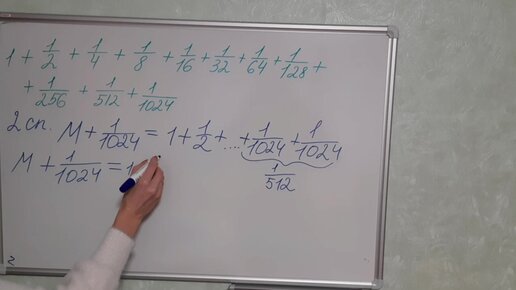 1 + 1/2 + 1/4 + 1/8 + 1/16 + 1/32 + 1/64 + 1/128 +
+ 1/256 + 1/512 + 1/1024
2 сп. M + 1/1024 = 1 + 1/2 + ... + 1/1024 + 1/1024
1/512
M + 1/1024 = 1
2